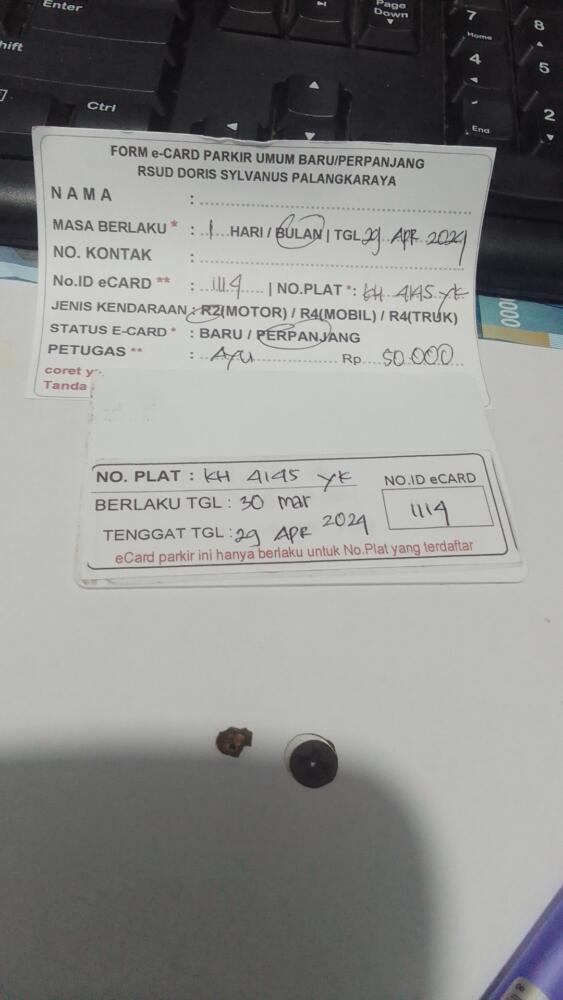 Enter
Page
Down
7
Home
8
hift
4
5
Ctrl
2
End
FORM e-CARD PARKIR UMUM BARU/PERPANJANG
RSUD DORIS SYLVANUS PALANGKARAYA
N A M A :
MASA BERLAKU * : 1 HARI / BULAN | TGL 29 APR 2024
NO. KONTAK :
No.ID eCARD ** : 1114 | NO.PLAT *: KH 4145 YK
JENIS KENDARAAN : R2(MOTOR) / R4(MOBIL) / R4(TRUK)
STATUS E-CARD * : BARU / PERPANJANG
PETUGAS ** : Ayu Rp 50.000
coret y
Tanda
000
NO. PLAT : KH 4145 YK
NO.ID eCARD
BERLAKU TGL : 30 Mar
1114
TENGGAT TGL : 29 APR 2024
eCard parkir ini hanya berlaku untuk No.Plat yang terdaftar